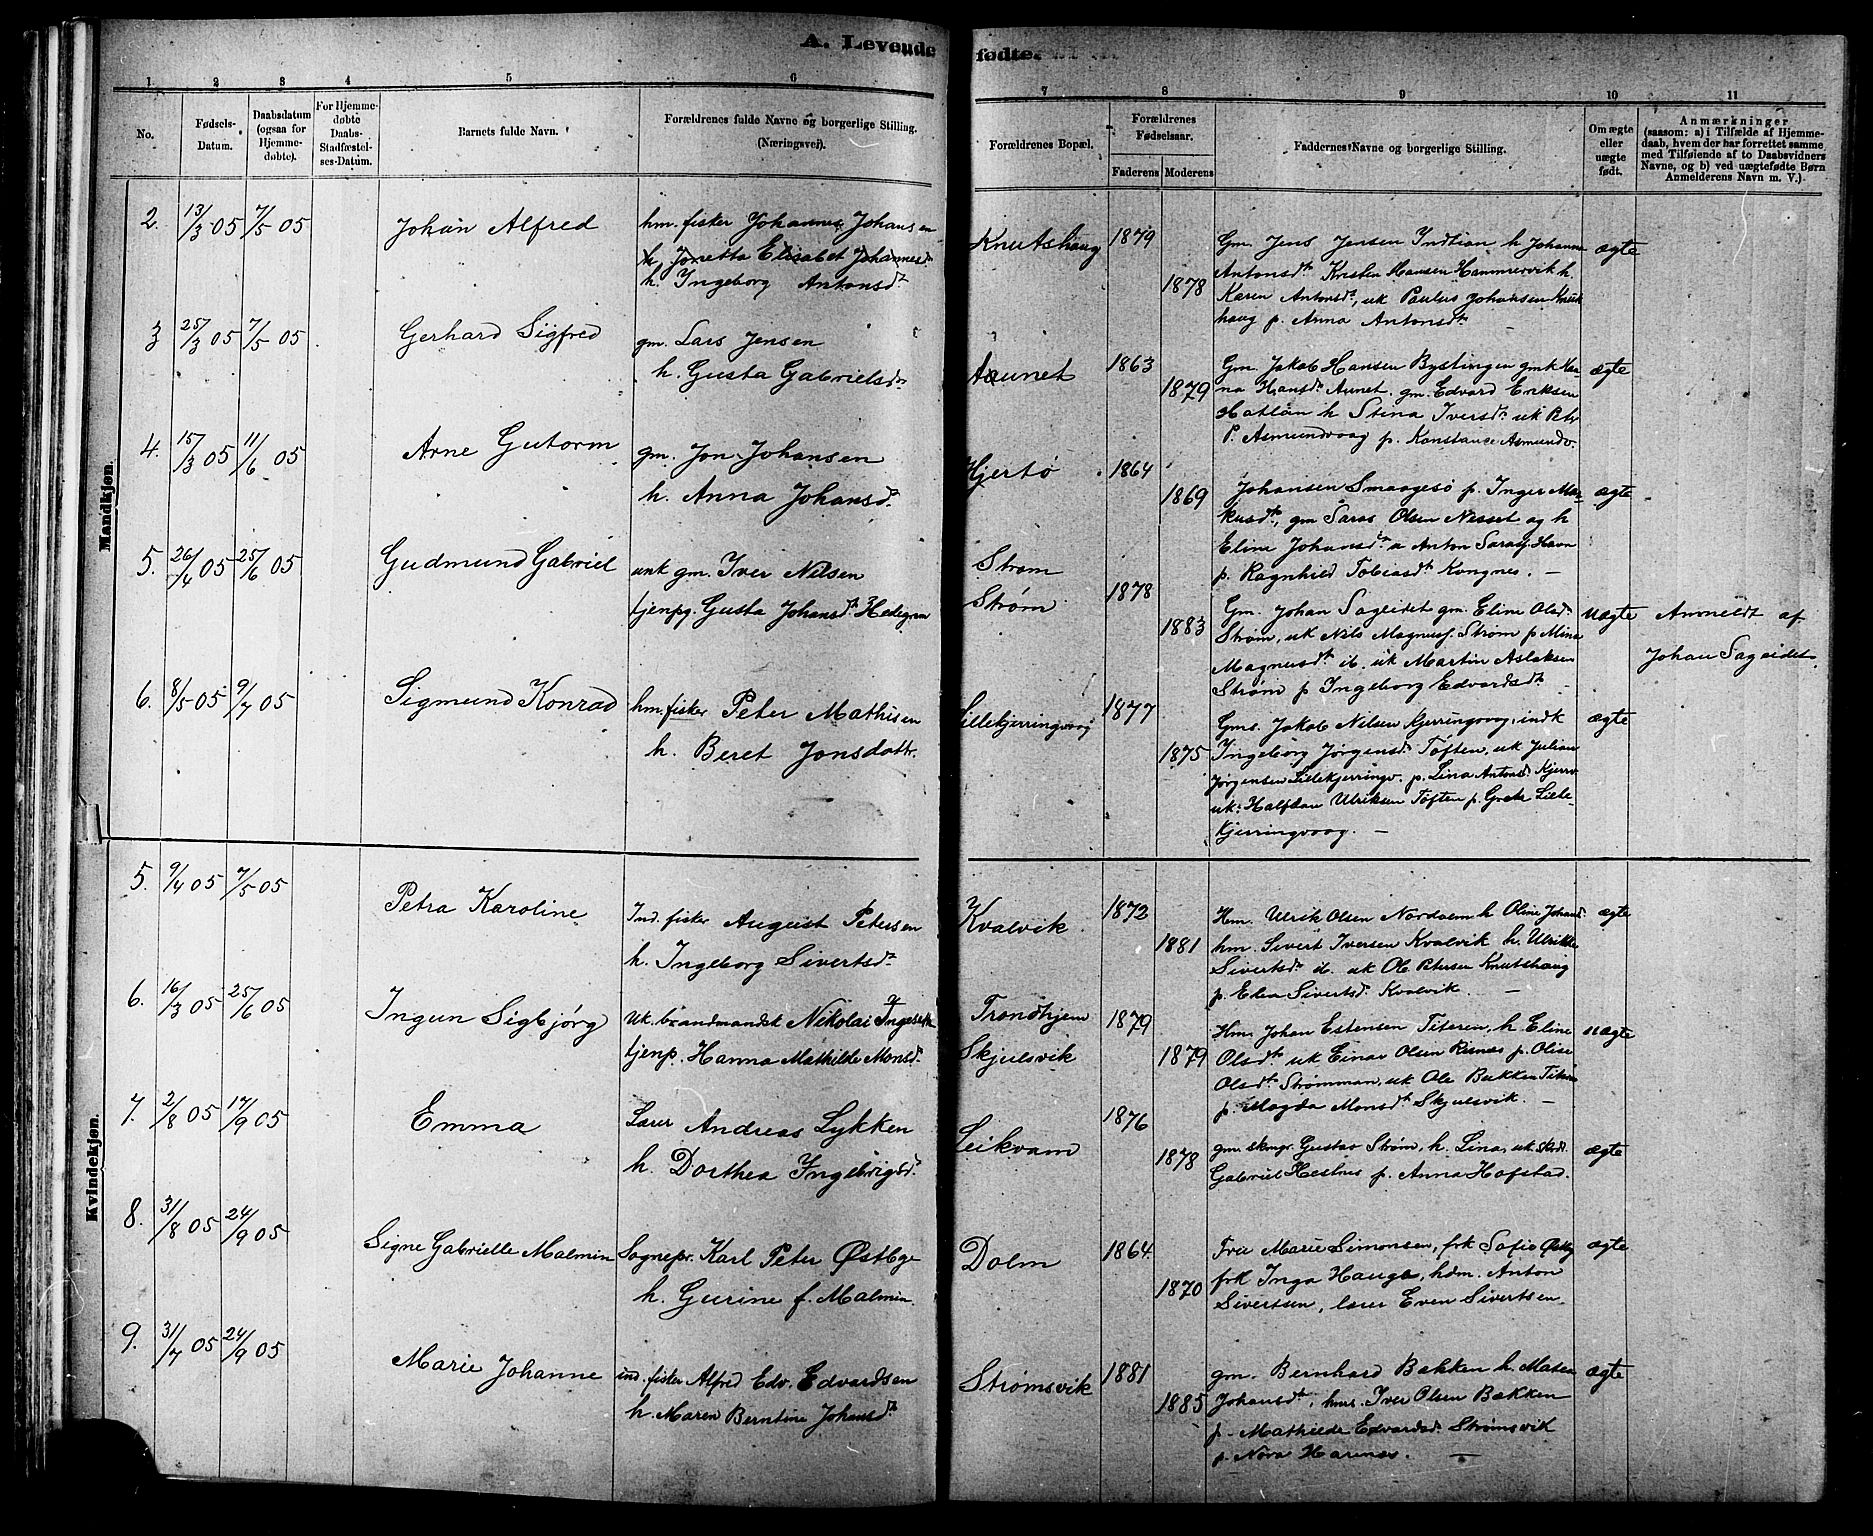 A. Levende fødte.
1. 2 3 4 5 6 7 8 9 10 11
No.
Fødsels-Datum.
Daabsdatum (ogsaa for Hjemmedøbte).
For Hjemmedøbte Daabs-Stadfæstelses-Datum.
Barnets fulde Navn.
Forældrenes fulde Navne og borgerlige Stilling.
(Næringsvei).
Forældrenes Bopæl.
Forældrenes Fødselsaar.
Faderens Moderens
Faddernes Navne og borgerlige Stilling.
Om ægte eller uægte født.
Anmærkninger
(saasom: a) i Tilfælde af Hjemmedaab, hvem der har forrettet samme med Tilføiende af to Daabsvidners Navne, og b) ved uægtefødte Børn Anmelderens Navn m. V.)
Mandkjøn.
2. 13/3 05 7/5 05 Johan Alfred
hm. fisker Johannes Johansen
h. Jonetta Elisabet Johannesdt
h. Ingeborg Antonsdt
Knutshaug 1879 1878
Gm. Jens Jensen Indtian h Johanna
Antonsdt, Kristen Hansen Hammervik h.
Karen Antonsdt, uk Paulus Johansen Knuts
haug p. Anna Antonsdt
ægte
3 25/3 05 7/5 05 Gerhard Sigfred
gm. Lars Jensen
h. Gusta Gabrielsdt
Aunet 1863 1879
Gm. Jakob Hansen Bystingen gmk Han
na Hansdt Aunet. gm. Edvard Eriksen
Hatlan h Stina Iversdt uk Petr
P. Asmundvaag p. Konstance Asmundv.
ægte
4. 15/3 05 11/6 05 Arne Gutorm
gm. Jon Johansen
h. Anna Johansdt.
Hjertø 1864 1869
Johansen Smaagesø p. Inger Mar
kusdt, gm Saras Olsen Nesset og h
Eline Johansdt. Anton Sarasj. Havn
p. Ragnhild Tobiasdt Kongnes. —
ægte
5. 26/4 05 25/6 05 Gudmund Gabriel
unk gm. Iver Nilsen
tjenpg. Gusta Johansdt Hedegren
Strøm
Strøm 1878 1883
Gm. Johan Sageidet gm. Eline Olsdt.
Strøm, uk Nils Magnusj. Strøm p Mina
Magnusdt ib. uk Martin Aslaksen
Strøm p Ingeborg Edvardsdt. —
uægte
Anmeldt af
Johan Sageidet.
6. 8/5 05 9/7 05 Sigmund Konrad
hm. fisker Peter Mathisen
h. Beret Jonsdattr.
Lillekjerringvaag 1877 1875
Gms. Jakob Nilsen Kjerringvaag, indk
Ingeborg Jørgensdt. Toften, uk Julian
Jørgensen Lillekjerringv. p. Lina Antonsdt. Kjerrv
uk. Halfdan Ulriksen Toften p. Grete Lille-
kjerringvaag. —
ægte
Kvindekjøn.
5. 9/4 05 7/5 05 Petra Karoline
Ind. fisker August Petersen
h. Ingeborg Sivertsdt
Kvalvik 1872 1881
Hm. Ulrik Olsen Nordvem h Oline Johansd.
hm. Sivert Iversen Kvalvik h. Ulrikke
Sivertsdt. ib. uk Ole Petersen Knutshaug
p. Elea Sivertsd. Kvalvik. —
ægte
6. 16/3 05 25/6 05 Ingun Sigbjørg
Uk. brandmandsk Nikolai
tjenp. Hanna Mathilde Monsd.
Trondhjem
Skjulsvik 1879 1879
Hm. Johan Estensen Titeren, h. Eline
Olsdt. uk Einar Olsen Risnes p. Olise
Olsdt. Strømman, uk Ole Bakken Titran
p. Magda Monsdt Skjulsvik. —
uægte
7. 2/8 05 17/9 05 Emma
Lærer Andreas Lykken
h. Dorthea Ingebrigtsdt.
Leikvam 1876 1878
gm. Gustav Strøm, h. Lina, uk.
Gabriel Hestnes p. Anna Hofstad.
ægte
8. 31/8 05 24/9 05 Signe Gabrielle Malmin
Sognepr. Karl Peter Østbye
h. Gurine f. Malmin.
Dolm 1864 1870
Fru Marie Simonsen, frk Sofie Østby
frk Inga Hauge, hdm. Anton
Sivertsen, lærer Even Sivertsen.
ægte
9. 31/7 05 24/9 05 Marie Johanne
ind. fisker Alfred Edv. Edvardsen
h. Maren Berntine Johansdt
Strømsvik 1881 1885
gm. Bernhard Bakken h. Matea
Johansdt, hms. Iver Olsen Bakken
p. Mathilde Edvardsd. Strømsvik
p. Nora Harenes. —
ægte